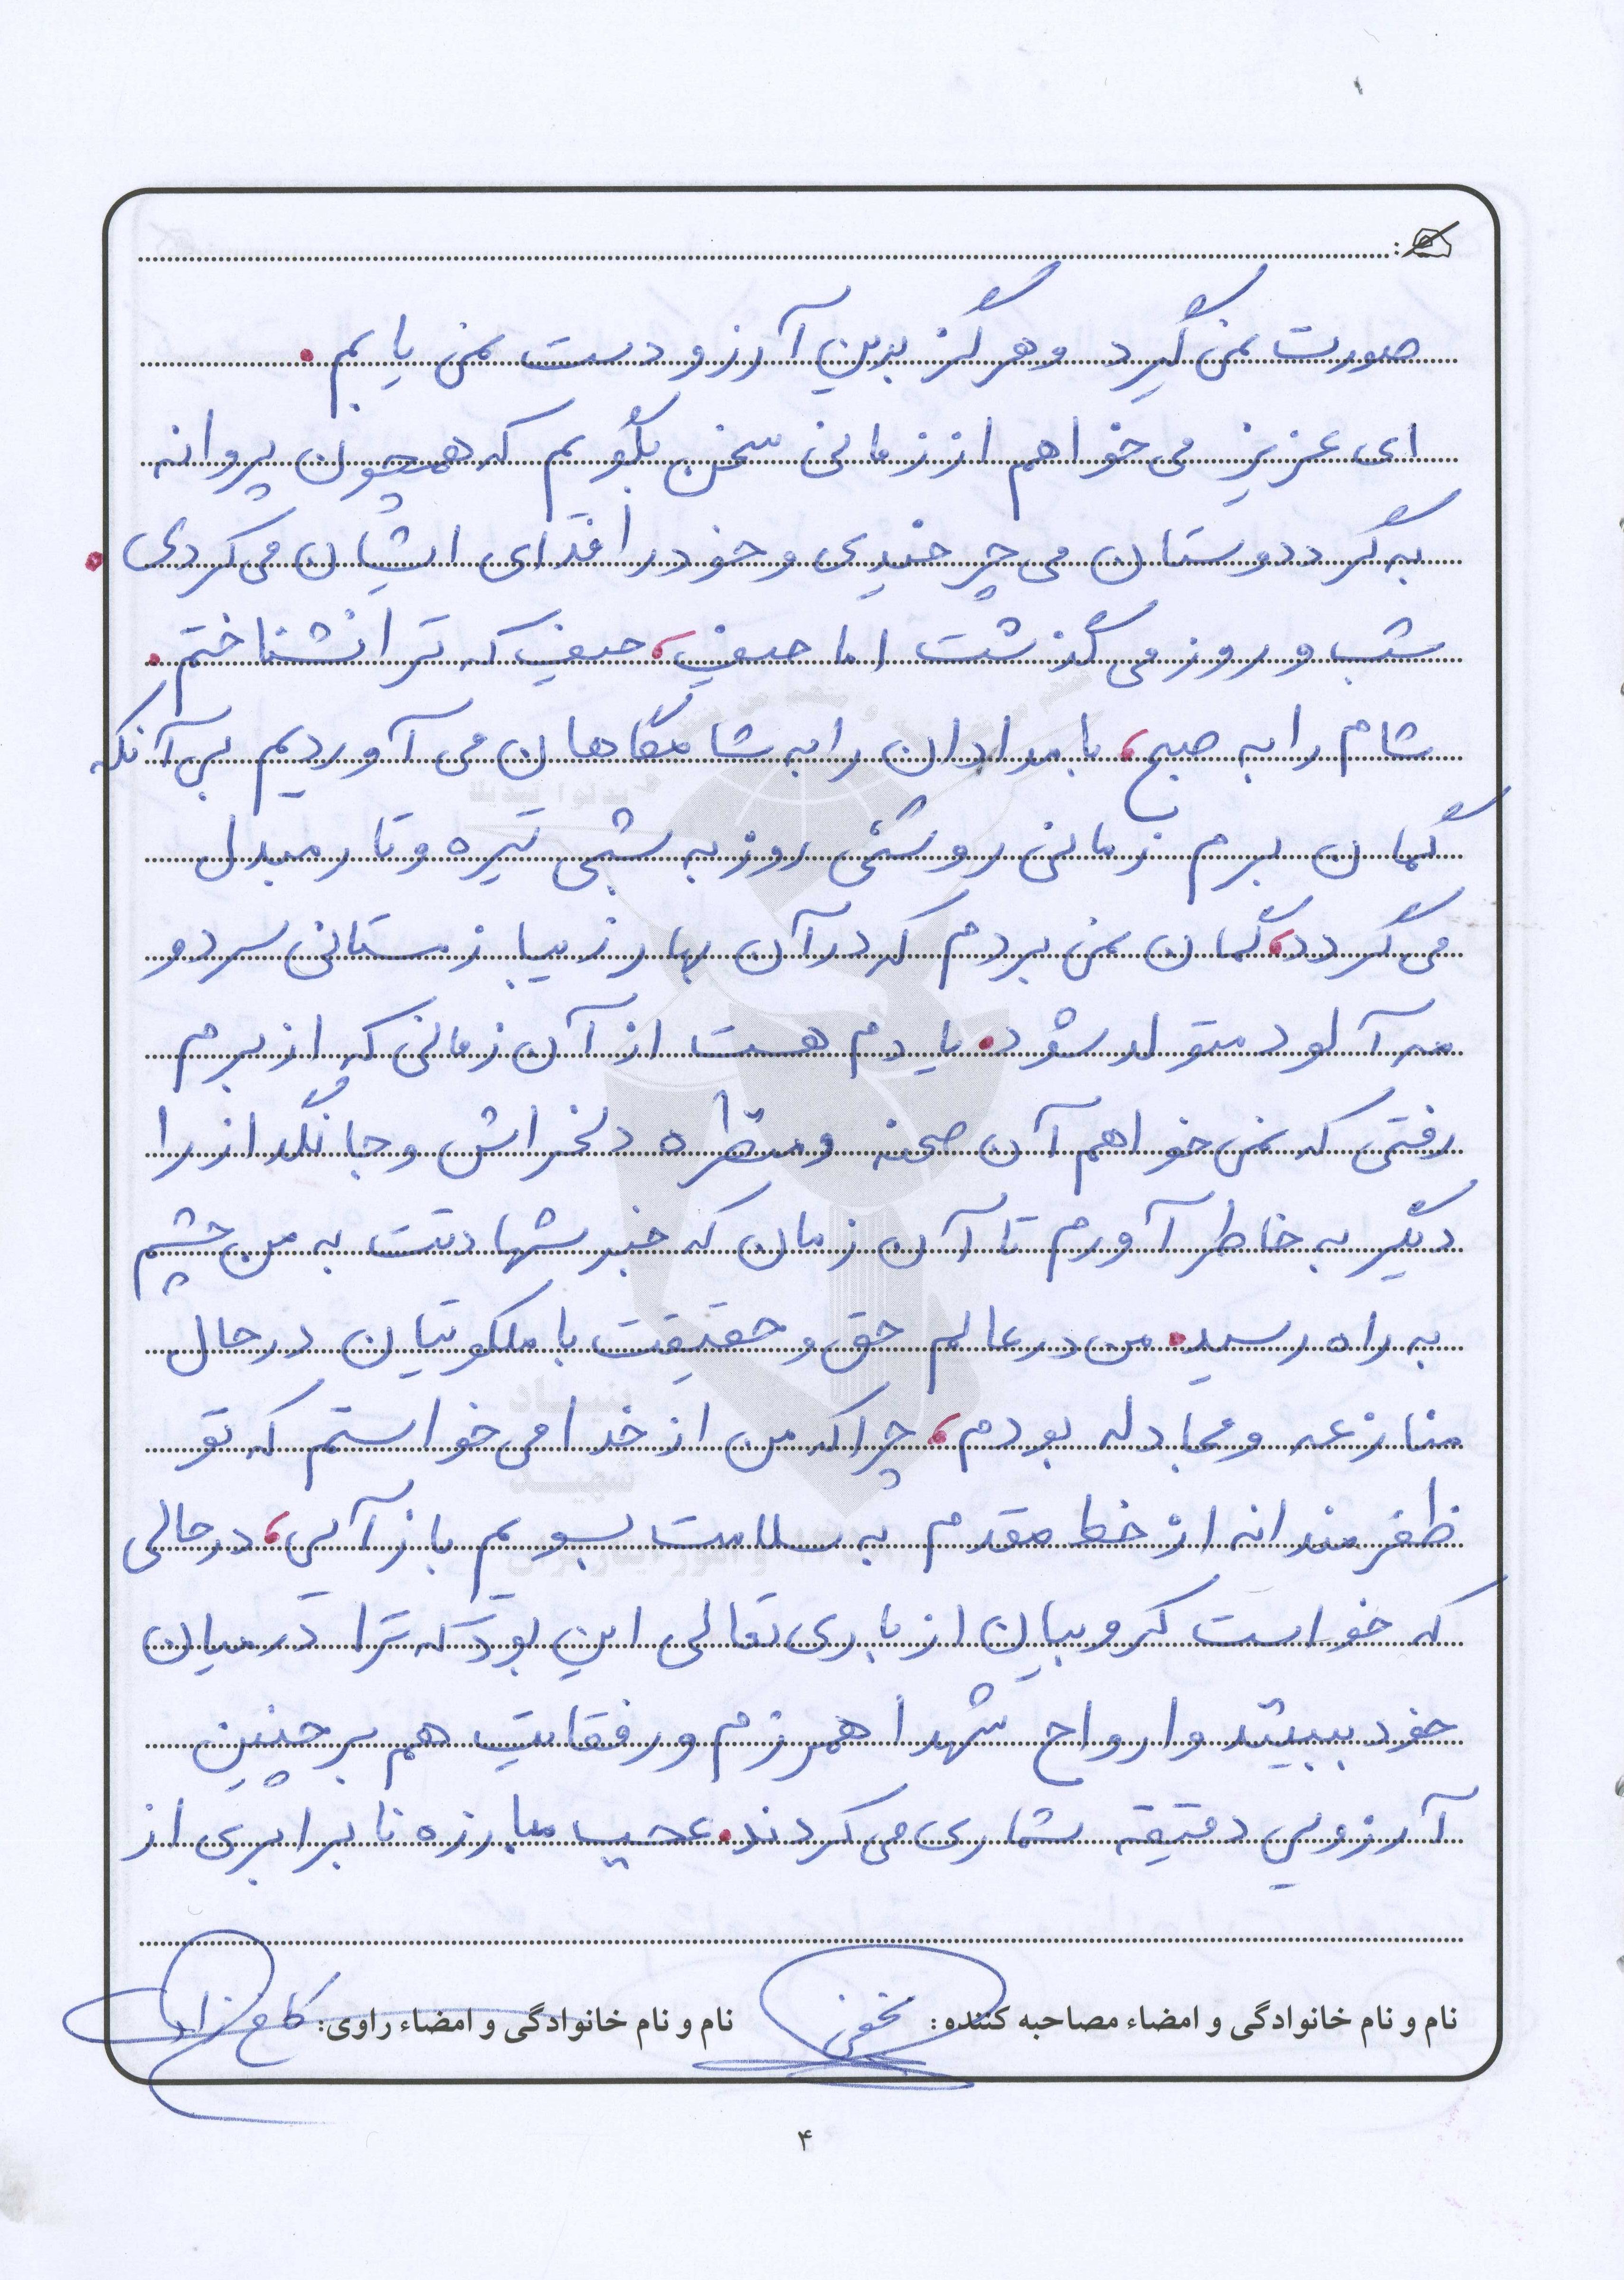 صورت نمی گیرد و هرگز بدین آرزو دست نمی یابم.
ای عزیز می خواهم از زمانی سخن بگویم که همچون پروانه
به گرد دوستان می چرخیدی و خود را فدای ایشان می کردی.
شب و روز می گذشت اما حیف، حیف که ترا نشناختم.
شام را به صبح، بامدادان را به شامگاهان می آوردیم بی آنکه
گمان برم زمانی روشنی روز به شبی تیره و تار مبدل
می گردد، گمان نمی بردم که در آن بهار زیبا زمستانی سرد و
مه آلود متولد شود. یادم هست از آن زمانی که از برم
رفتی که نمی خواهم آن صحنه و منظره دلخراش و جانگداز را
دیگر به خاطر آورم تا آن زمان که خبر شهادتت به من چشم
به راه رسید. من در عالم حق و حقیقت با ملکوتیان در حال
منازعه و مجادله بودم، چرا که من از خدا می خواستم که تو
ظفرمندانه از خط مقدم به سلامت بسویم باز آیی، در حالی
که خواست کروبیان از باری تعالی این بود که ترا در میان
خود ببینند و ارواح شهدا همرزم و رفقایت هم بر چنین
آرزویی دقیقه شماری می کردند. عجب مبارزه نابرابری از
نام و نام خانوادگی و امضاء مصاحبه کننده: نام و نام خانوادگی و امضاء راوی:
۴
بنیاد
شهید